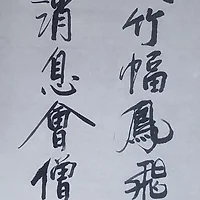 竹幅鳳飛
消息會僧